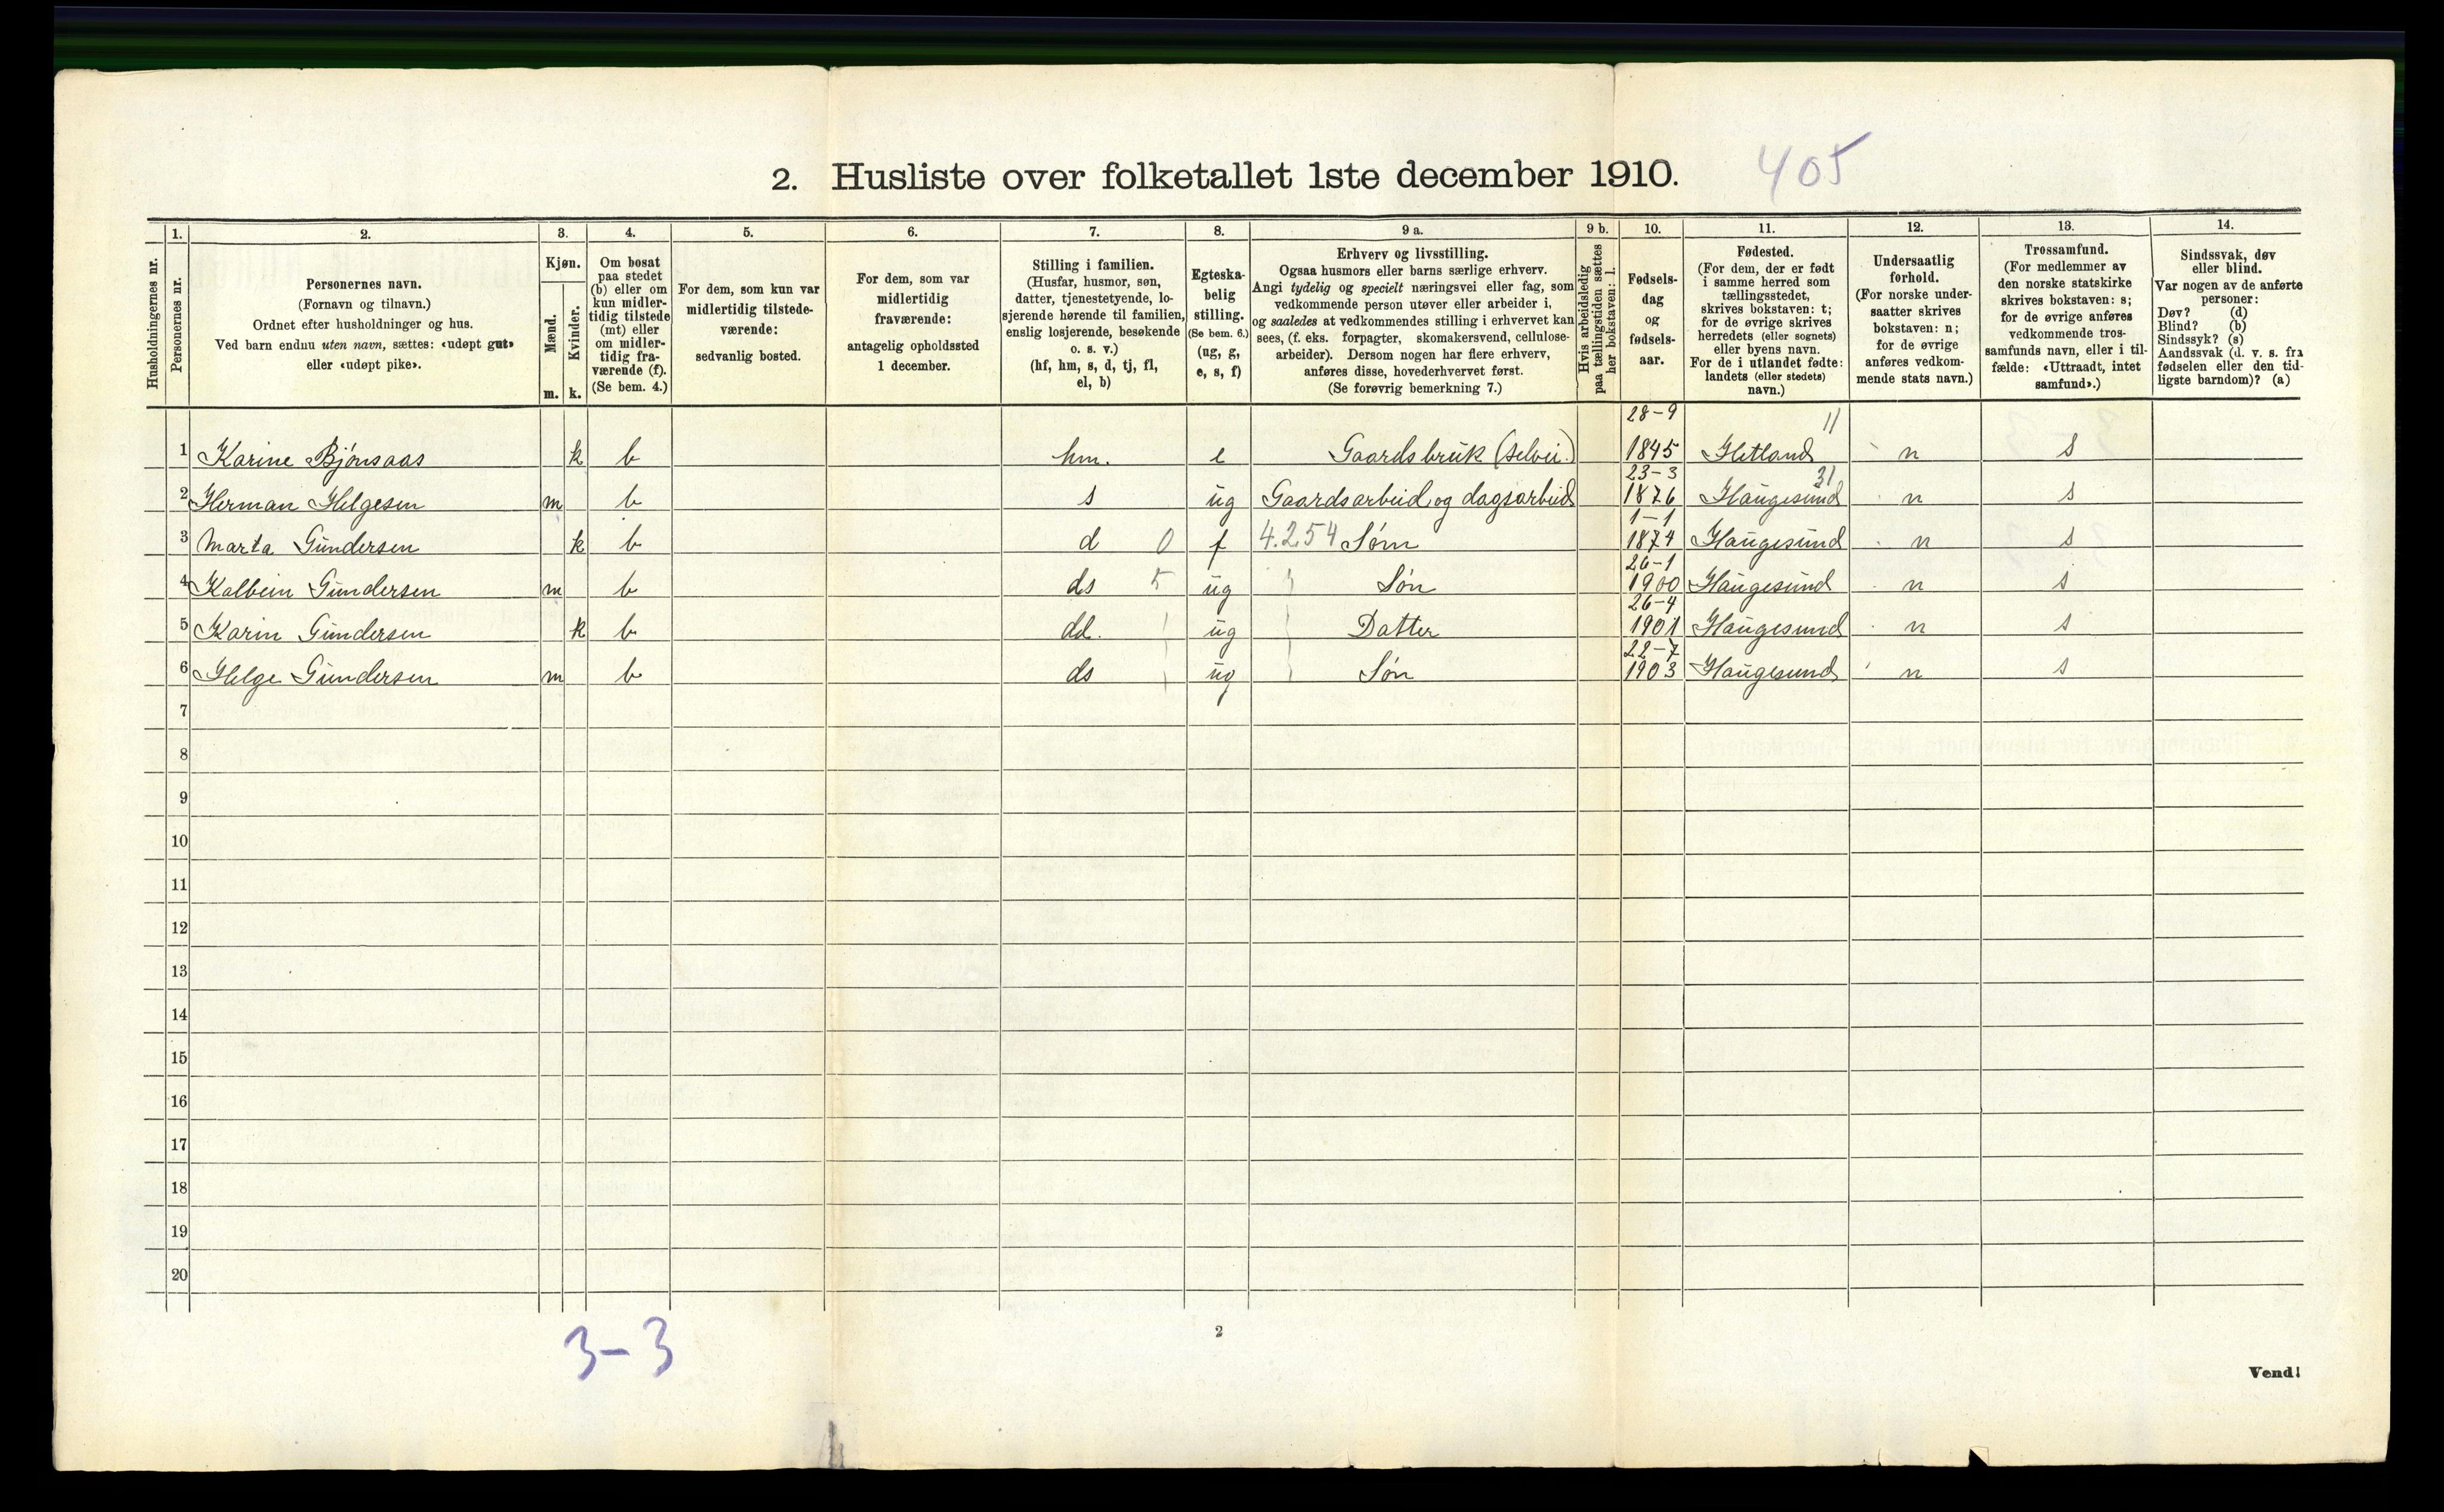 2. Husliste over folketallet 1ste december 1910. 405
1. 2. 3. 4. 5. 6. 7. 8. 9 a. 9 b. 10. 11. 12. 13. 14.
Husholdningernes nr.
Personernes nr.
Personernes navn.
(Fornavn og tilnavn.)
Ordnet efter husholdninger og hus.
Ved barn endnu uten navn, sættes: «udøpt gut»
eller «udøpt pike».
Kjøn.
Mænd.
Kvinder.
m. k.
Om bosat
paa stedet
(b) eller om
kun midler-
tidig tilstede
(mt) eller
om midler-
tidig fra-
værende (f).
(Se bem. 4.)
For dem, som kun var
midlertidig tilstede-
værende:
sedvanlig bosted.
For dem, som var
midlertidig
fraværende:
antagelig opholdssted
1 december.
Stilling i familien.
(Husfar, husmor, søn,
datter, tjenestetyende, lo-
sjerende hørende til familien,
enslig losjerende, besøkende
o. s. v.)
(hf, hm, s, d, tj, fl,
el, b)
Egteska-
belig
stilling.
(Se bem. 6.)
(ug, g,
e, s, f)
Erhverv og livsstilling.
Ogsaa husmors eller barns særlige erhverv.
Angi tydelig og specielt næringsvei eller fag, som
vedkommende person utøver eller arbeider i,
og saaledes at vedkommendes stilling i erhvervet kan
sees, (f. eks. forpagter, skomakersvend, cellulose-
arbeider). Dersom nogen har flere erhverv,
anføres disse, hovederhvervet først.
(Se forøvrig bemerkning 7.)
Hvis arbeidsledig
paa tællingstiden sættes
her bokstaven: l.
Fødsels-
dag
og
fødsels-
aar.
Fødested.
(For dem, der er født
i samme herred som
tællingsstedet,
skrives bokstaven: t;
for de øvrige skrives
herredets (eller sognets)
eller byens navn.
For de i utlandet fødte:
landets (eller stedets)
navn.)
Undersaatlig
forhold.
(For norske under-
saatter skrives
bokstaven: n;
for de øvrige
anføres vedkom-
mende stats navn.)
Trossamfund.
(For medlemmer av
den norske statskirke
skrives bokstaven: s;
for de øvrige anføres
vedkommende tros-
samfunds navn, eller i til-
fælde: «Uttraadt, intet
samfund».)
Sindssvak, døv
eller blind.
Var nogen av de anførte
personer:
Døv? (d)
Blind? (b)
Sindssyk? (s)
Aandssvak (d. v. s. fra
fødselen eller den tid-
ligste barndom)? (a)
28-9 11
1 Karine Bjönsaas k b hm. e Gaardsbruk (selvei.) 1845 Hetland n s
23-3 31
2 Herman Helgesen m b s ug Gaardsarbeid og dagsarbeid 1876 Haugesund n s
1-1
3 Marta Gundersen k b d 0 f 4.254 Söm 1874 Haugesund n s
26-1
4 Kolbein Gundersen m b ds 5 ug Søn 1900 Haugesund n s
26-4
5 Karin Gundersen k b dd. ug Datter 1901 Haugesund n s
22-7
6 Helge Gundersen m b ds ug Søn 1903 Haugesund n s
7
8
9
10
11
12
13
14
15
16
17
18
19
20
3-3
2
Vend!